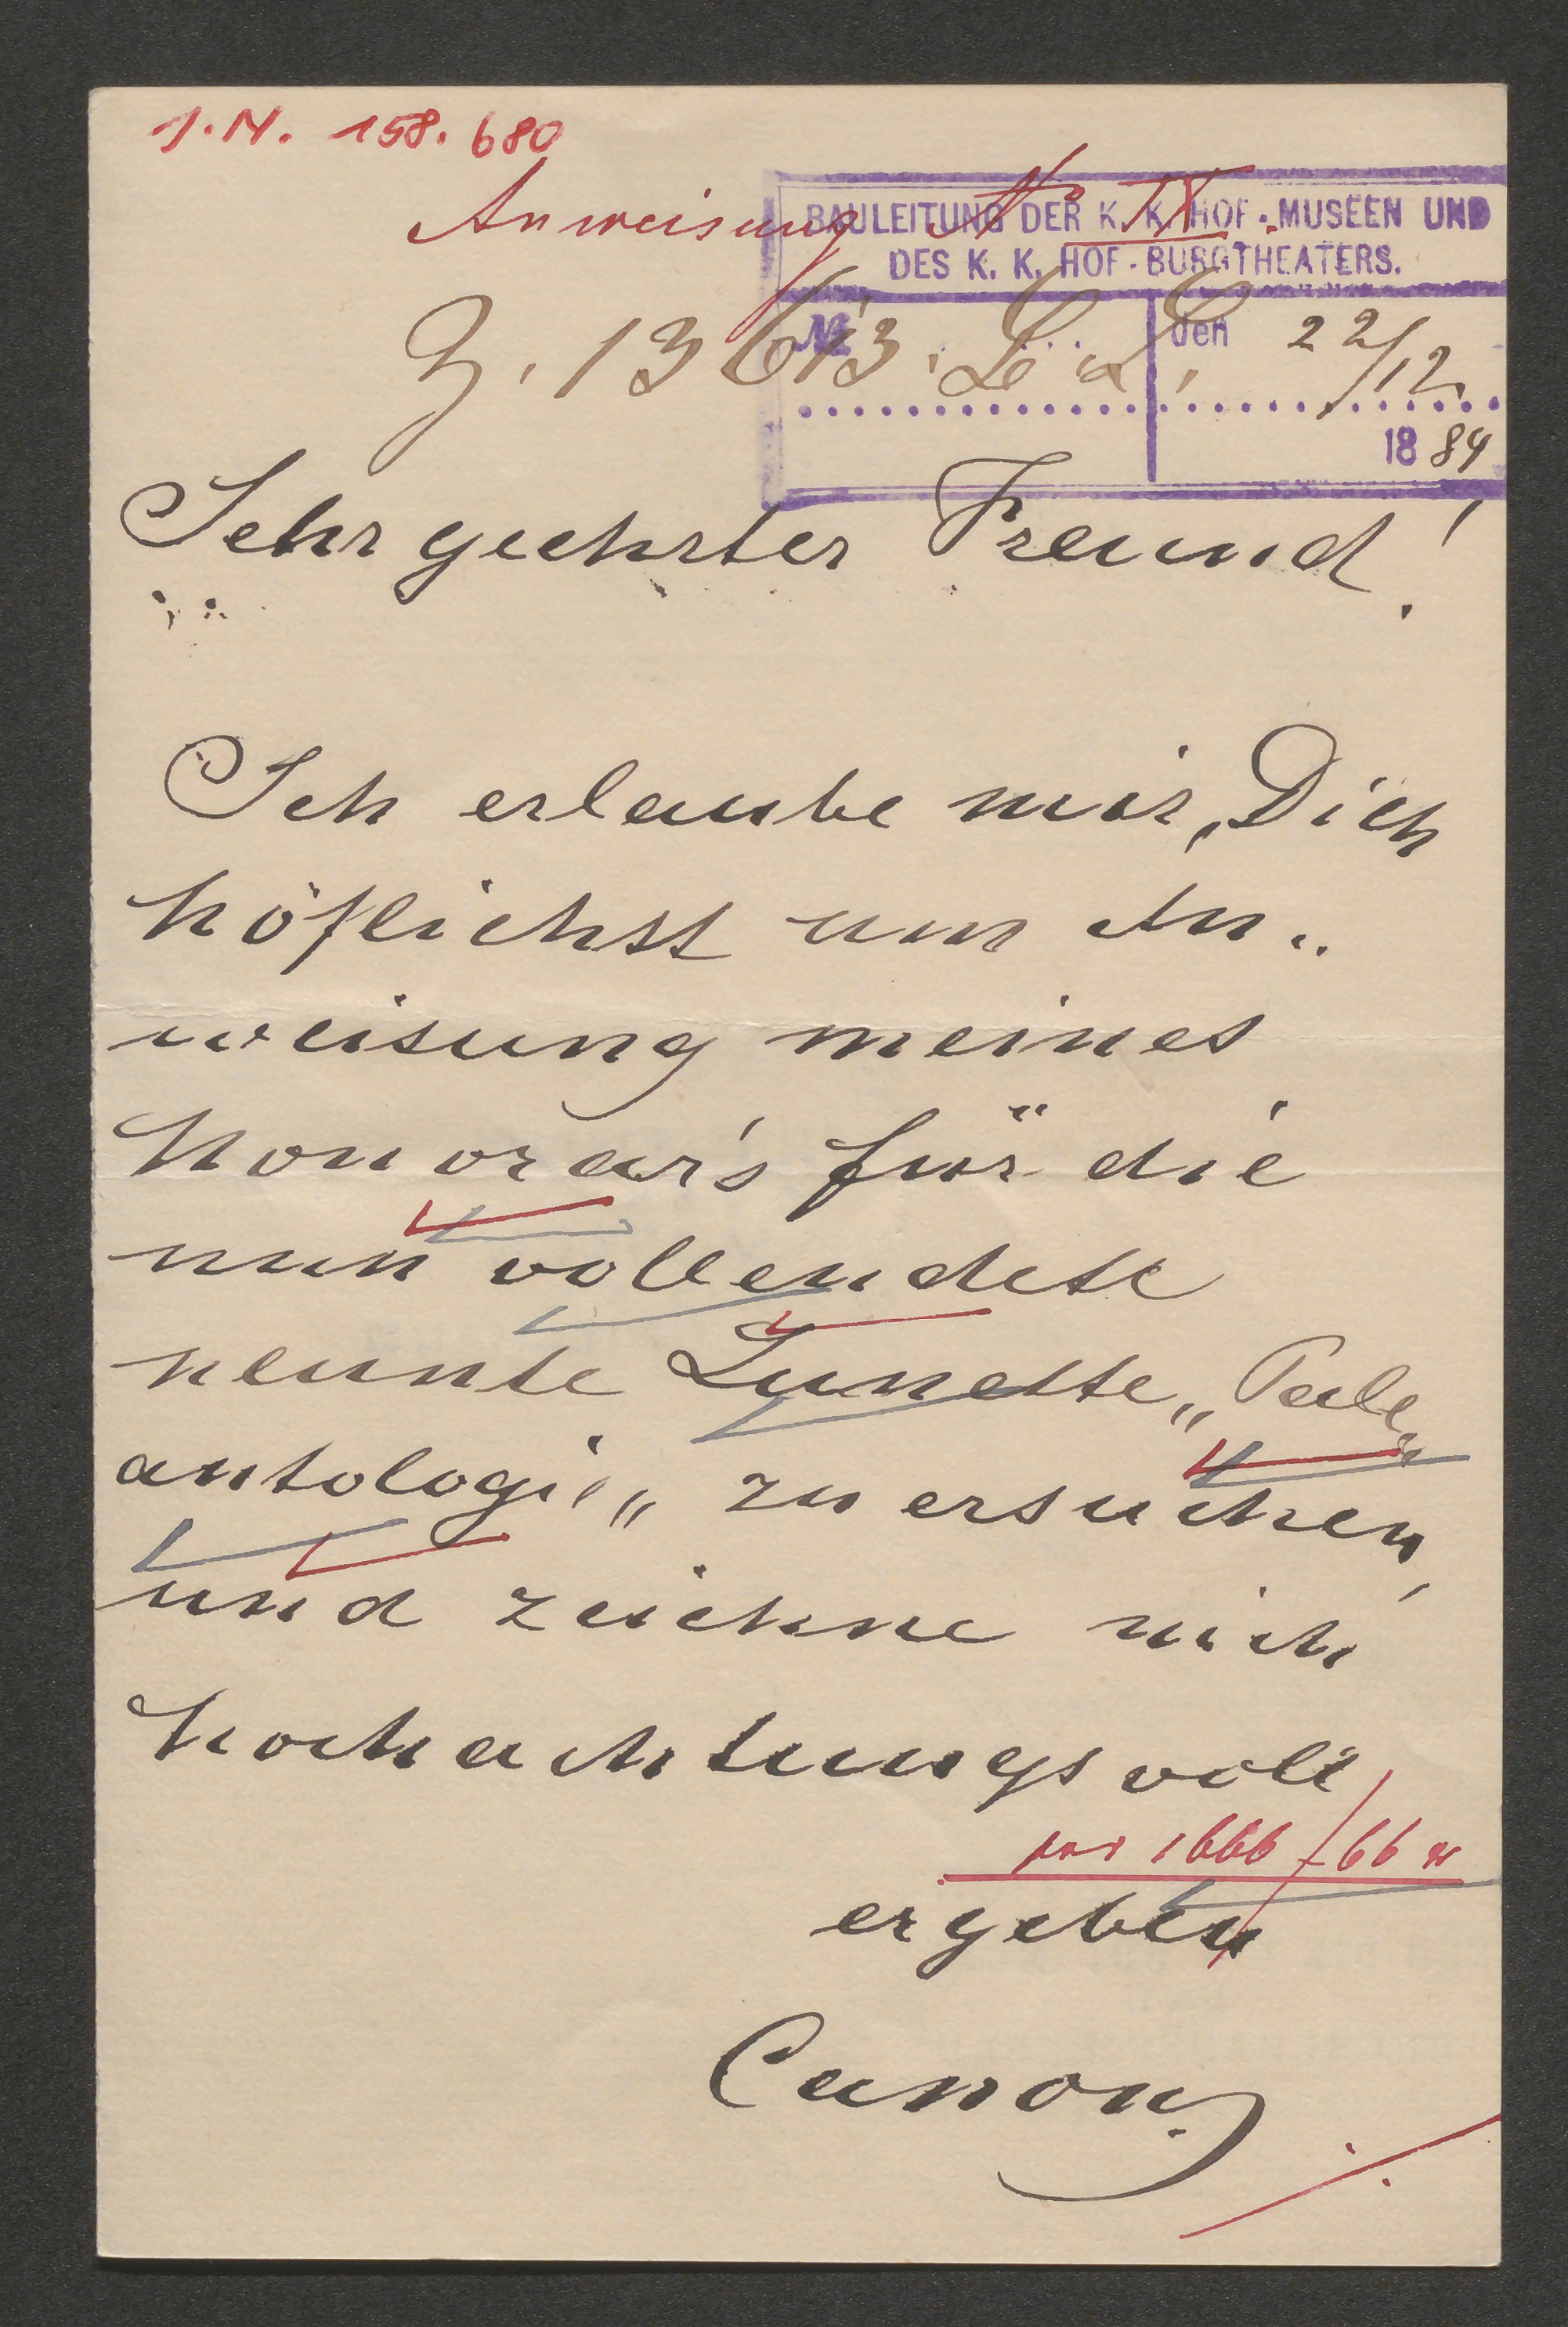 J.N. 158.680
Anweisung No IX.
BAULEITUNG DER K. K. HOF-MUSEEN UND
DES K. K. HOF-BURGTHEATERS.
Z. 13613.
No den 22/12
1884
Sehr geehrter Freund!
Ich erlaube mir, Dich
höflichst um An„
weisung meines
Honorar's für die
nun vollendete
neunte Lunette „Pale„
antologie„ zu ersuchen,
und zeichne mich
hochachtungsvoll
1666 66
ergeben
Canon